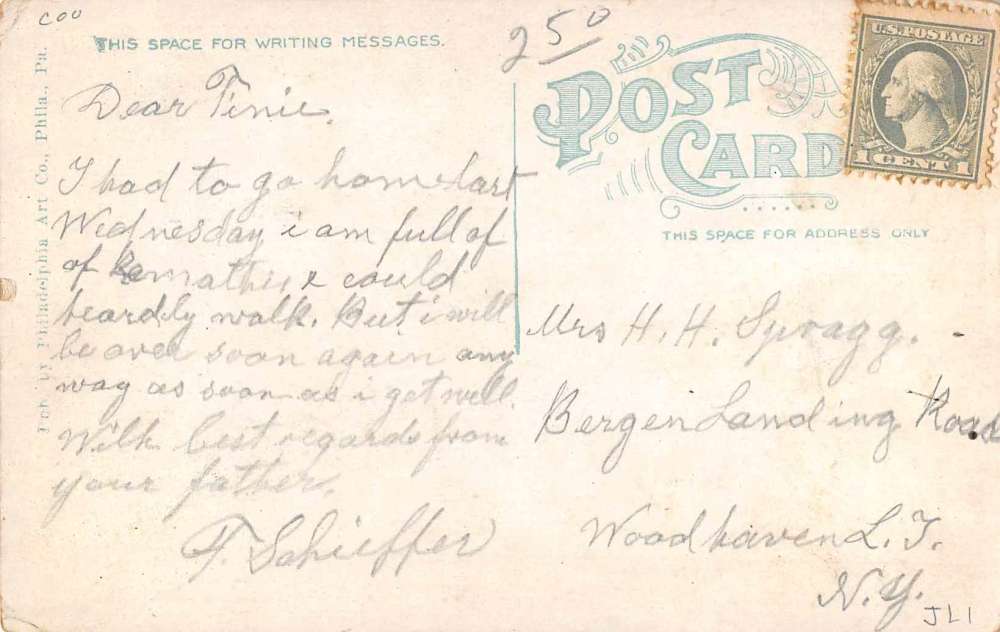 COO
THIS SPACE FOR WRITING MESSAGES.
250
POST
CARD
U.S. POSTAGE
1 CENT 1
THIS SPACE FOR ADDRESS ONLY
Pub. by Philadelphia Art Co., Phila., Pa.
Dear Tinie.
I had to go home last
Wednesday i am full of
of could
heardly walk. But i will
be over soon again any
way as soon as i get well.
With best regards from
your father.
F. Schieffer
Mrs H. H. Spragg.
Bergen Landing Road
Woodhaven L. I.
N. Y.
JL1